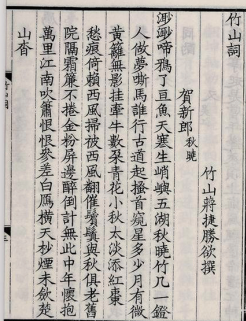 竹山詞
竹山蔣捷勝欲撰
賀新郎 秋曉
渺渺啼鴉了亘魚天寒生峭嶼五湖秋曉竹几一鐙
人做夢嘶馬誰行古道起搔首窺星多少月有微
黃籬無影挂牽牛數朶青花小秋太淡添紅棗
愁痕倚賴西風掃被西風翻催鬢鬒與秋俱老舊
院隔霜簾不捲金粉屏邊醉倒計無此中年懷抱
萬里江南吹簫恨恨參差白鴈橫天杪煙未斂楚
山杳